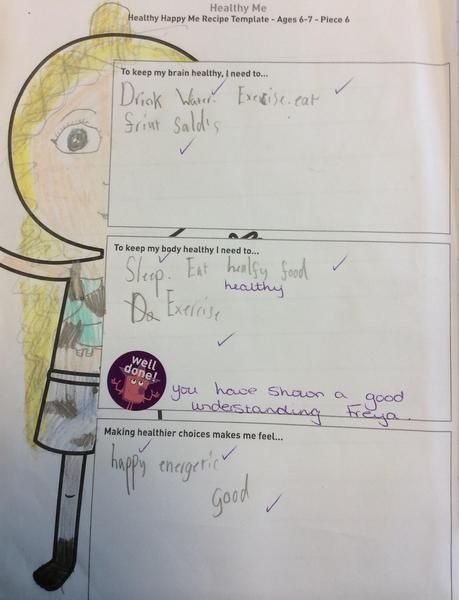 Healthy Me
Healthy Happy Me Recipe Template - Ages 6-7 - Piece 6
To keep my brain healthy, I need to...
Drink Water. Exercise. eat
friut saldis
To keep my body healthy I need to...
Sleep. Eat healfy food
healthy
Do Exercise
well
done!
you have shown a good
understanding Freya.
Making healthier choices makes me feel...
happy energetic
good